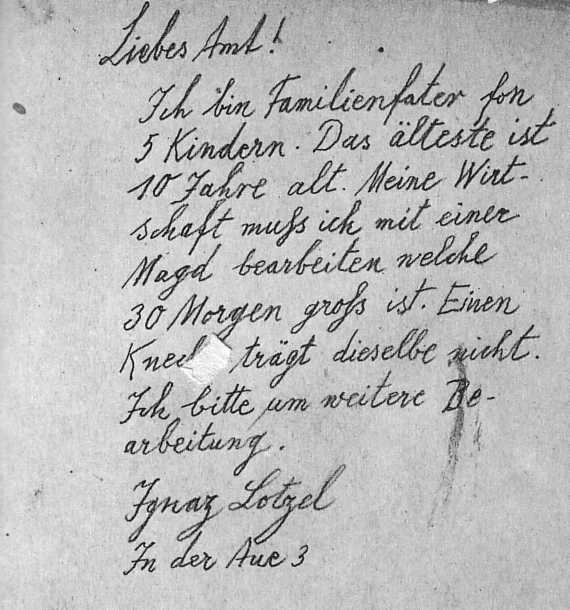 Liebes Amt!
Ich bin Familienfater fon
5 Kindern. Das älteste ist
10 Jahre alt. Meine Wirt-
schaft muſs ich mit einer
Magd bearbeiten welche
30 Morgen groſs ist. Einen
trägt dieselbe nicht.
Ich bitte um weitere Be-
arbeitung.
Ignaz Lotzel
In der Aue 3